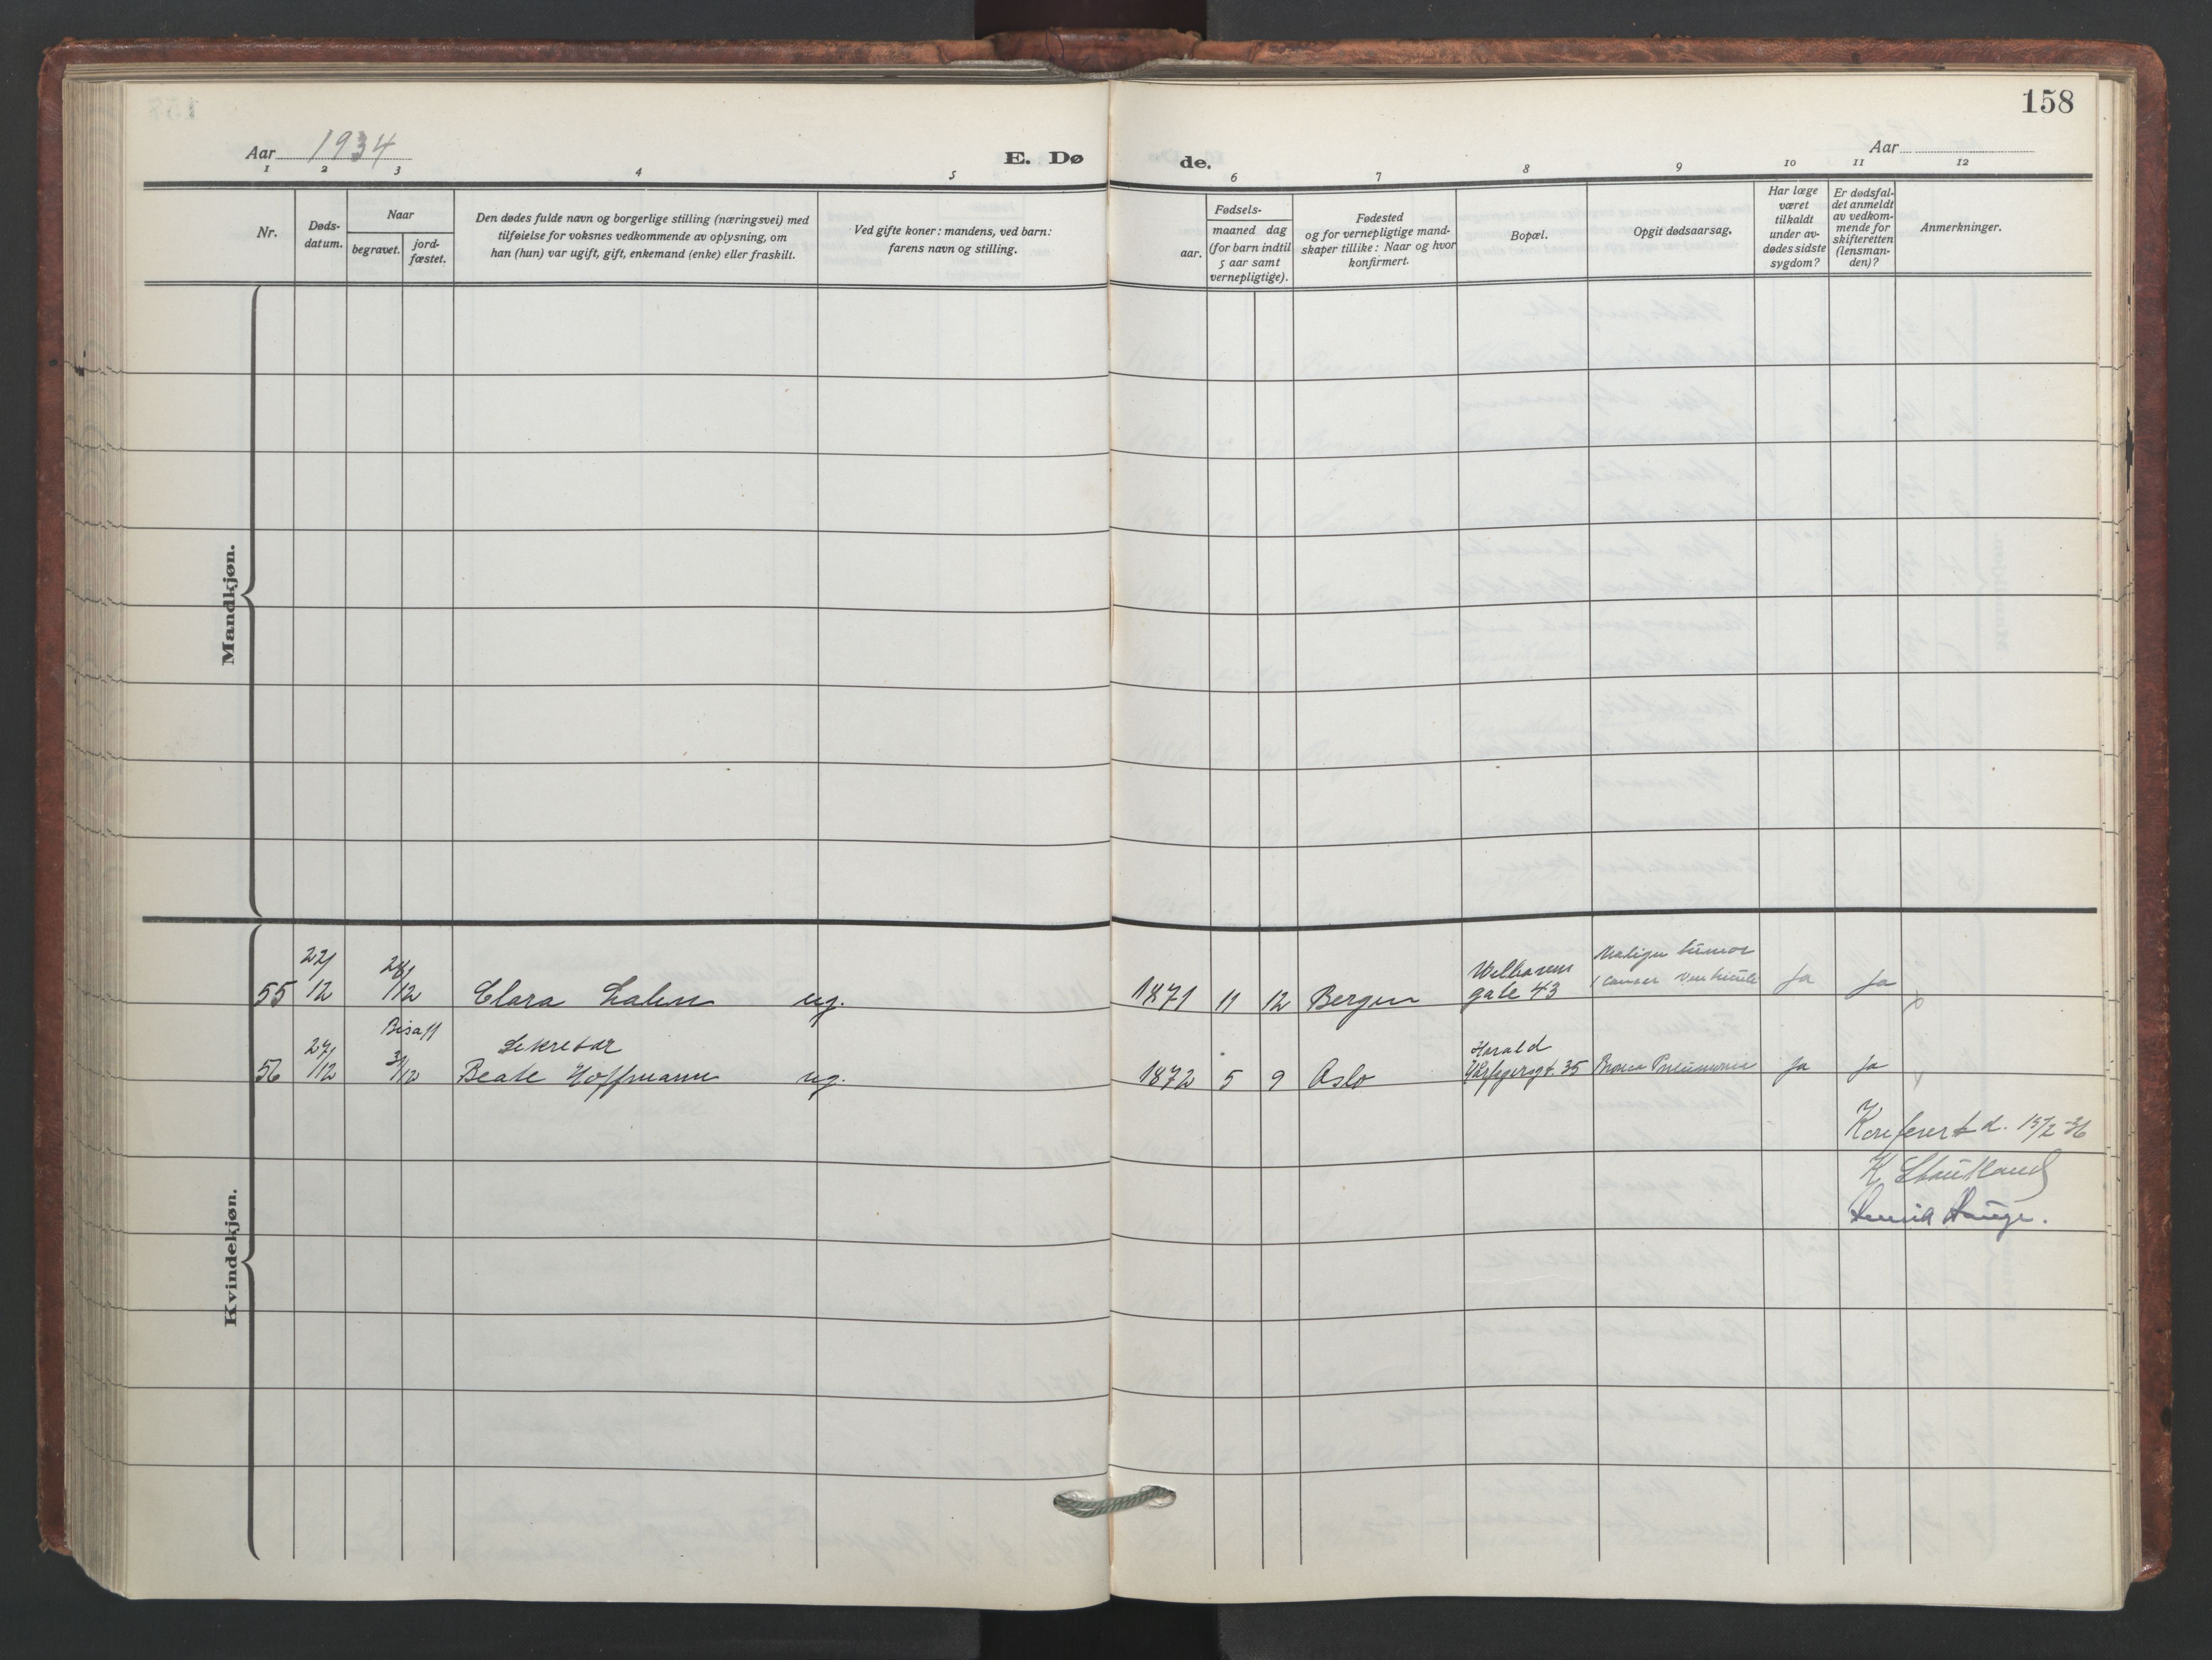 158
Aar 1934
E. Dø
de.
Aar
1 2 3 4 5 6 7 8 9 10 11 12
Nr.
Døds-
datum.
Naar
begravet.
jord-
fæstet.
Den dødes fulde navn og borgerlige stilling (næringsvei) med
tilføielse for voksnes vedkommende av oplysning, om
han (hun) var ugift, gift, enkemand (enke) eller fraskilt.
Ved gifte koner: mandens, ved barn:
farens navn og stilling.
Fødsels-
aar.
maaned dag
(for barn indtil
5 aar samt
vernepligtige).
Fødested
og for vernepligtige mand-
skaper tillike: Naar og hvor
konfirmert.
Bopæl.
Opgit dødsaarsag.
Har læge
været
tilkaldt
under av-
dødes sidste
sygdom?
Er dødsfal-
det anmeldt
av vedkom-
mende for
skifteretten
(lensman-
den)?
Anmerkninger.
Mandkjøn.
Kvindekjøn.
55 22/12 28/12 Clara ug. 1871 11 12 Bergen
gate 43
Malign tumor
Ja Ja
Sekretær
56 27/12 31/12 Beate Hoffmann ug. 1872 5 9 Oslo
Harald
35
Pneumonia
Ja Ja
Konferert d. 15/2-36
K.